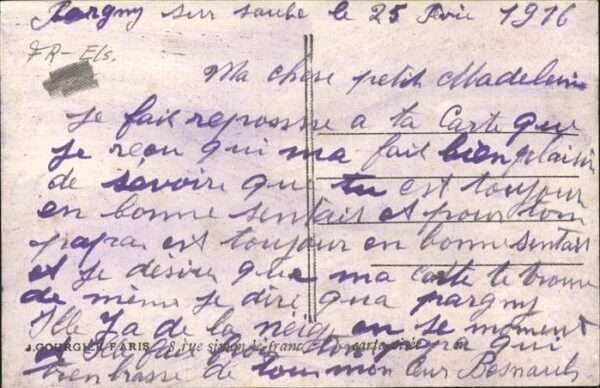 Pargny sur saulx le 25 Fevie 1916
FR-Els.
Ma chere petit Madeleine
Je fait reponsse a ta Carte que
Je reçu qui ma fait bien plaisir
de savoire que tu est toujour
en bonne sentait et pour ton
papa est toujour en bonne sentait
et Je désire que ma carte te trouve
de même Je dire qua pargny
Ille ya de la neige en se moment
J. GOURGIER PARIS 8, rue simon-le-franc
ton papa qui
bien brasse de tout mon cœur Besnault